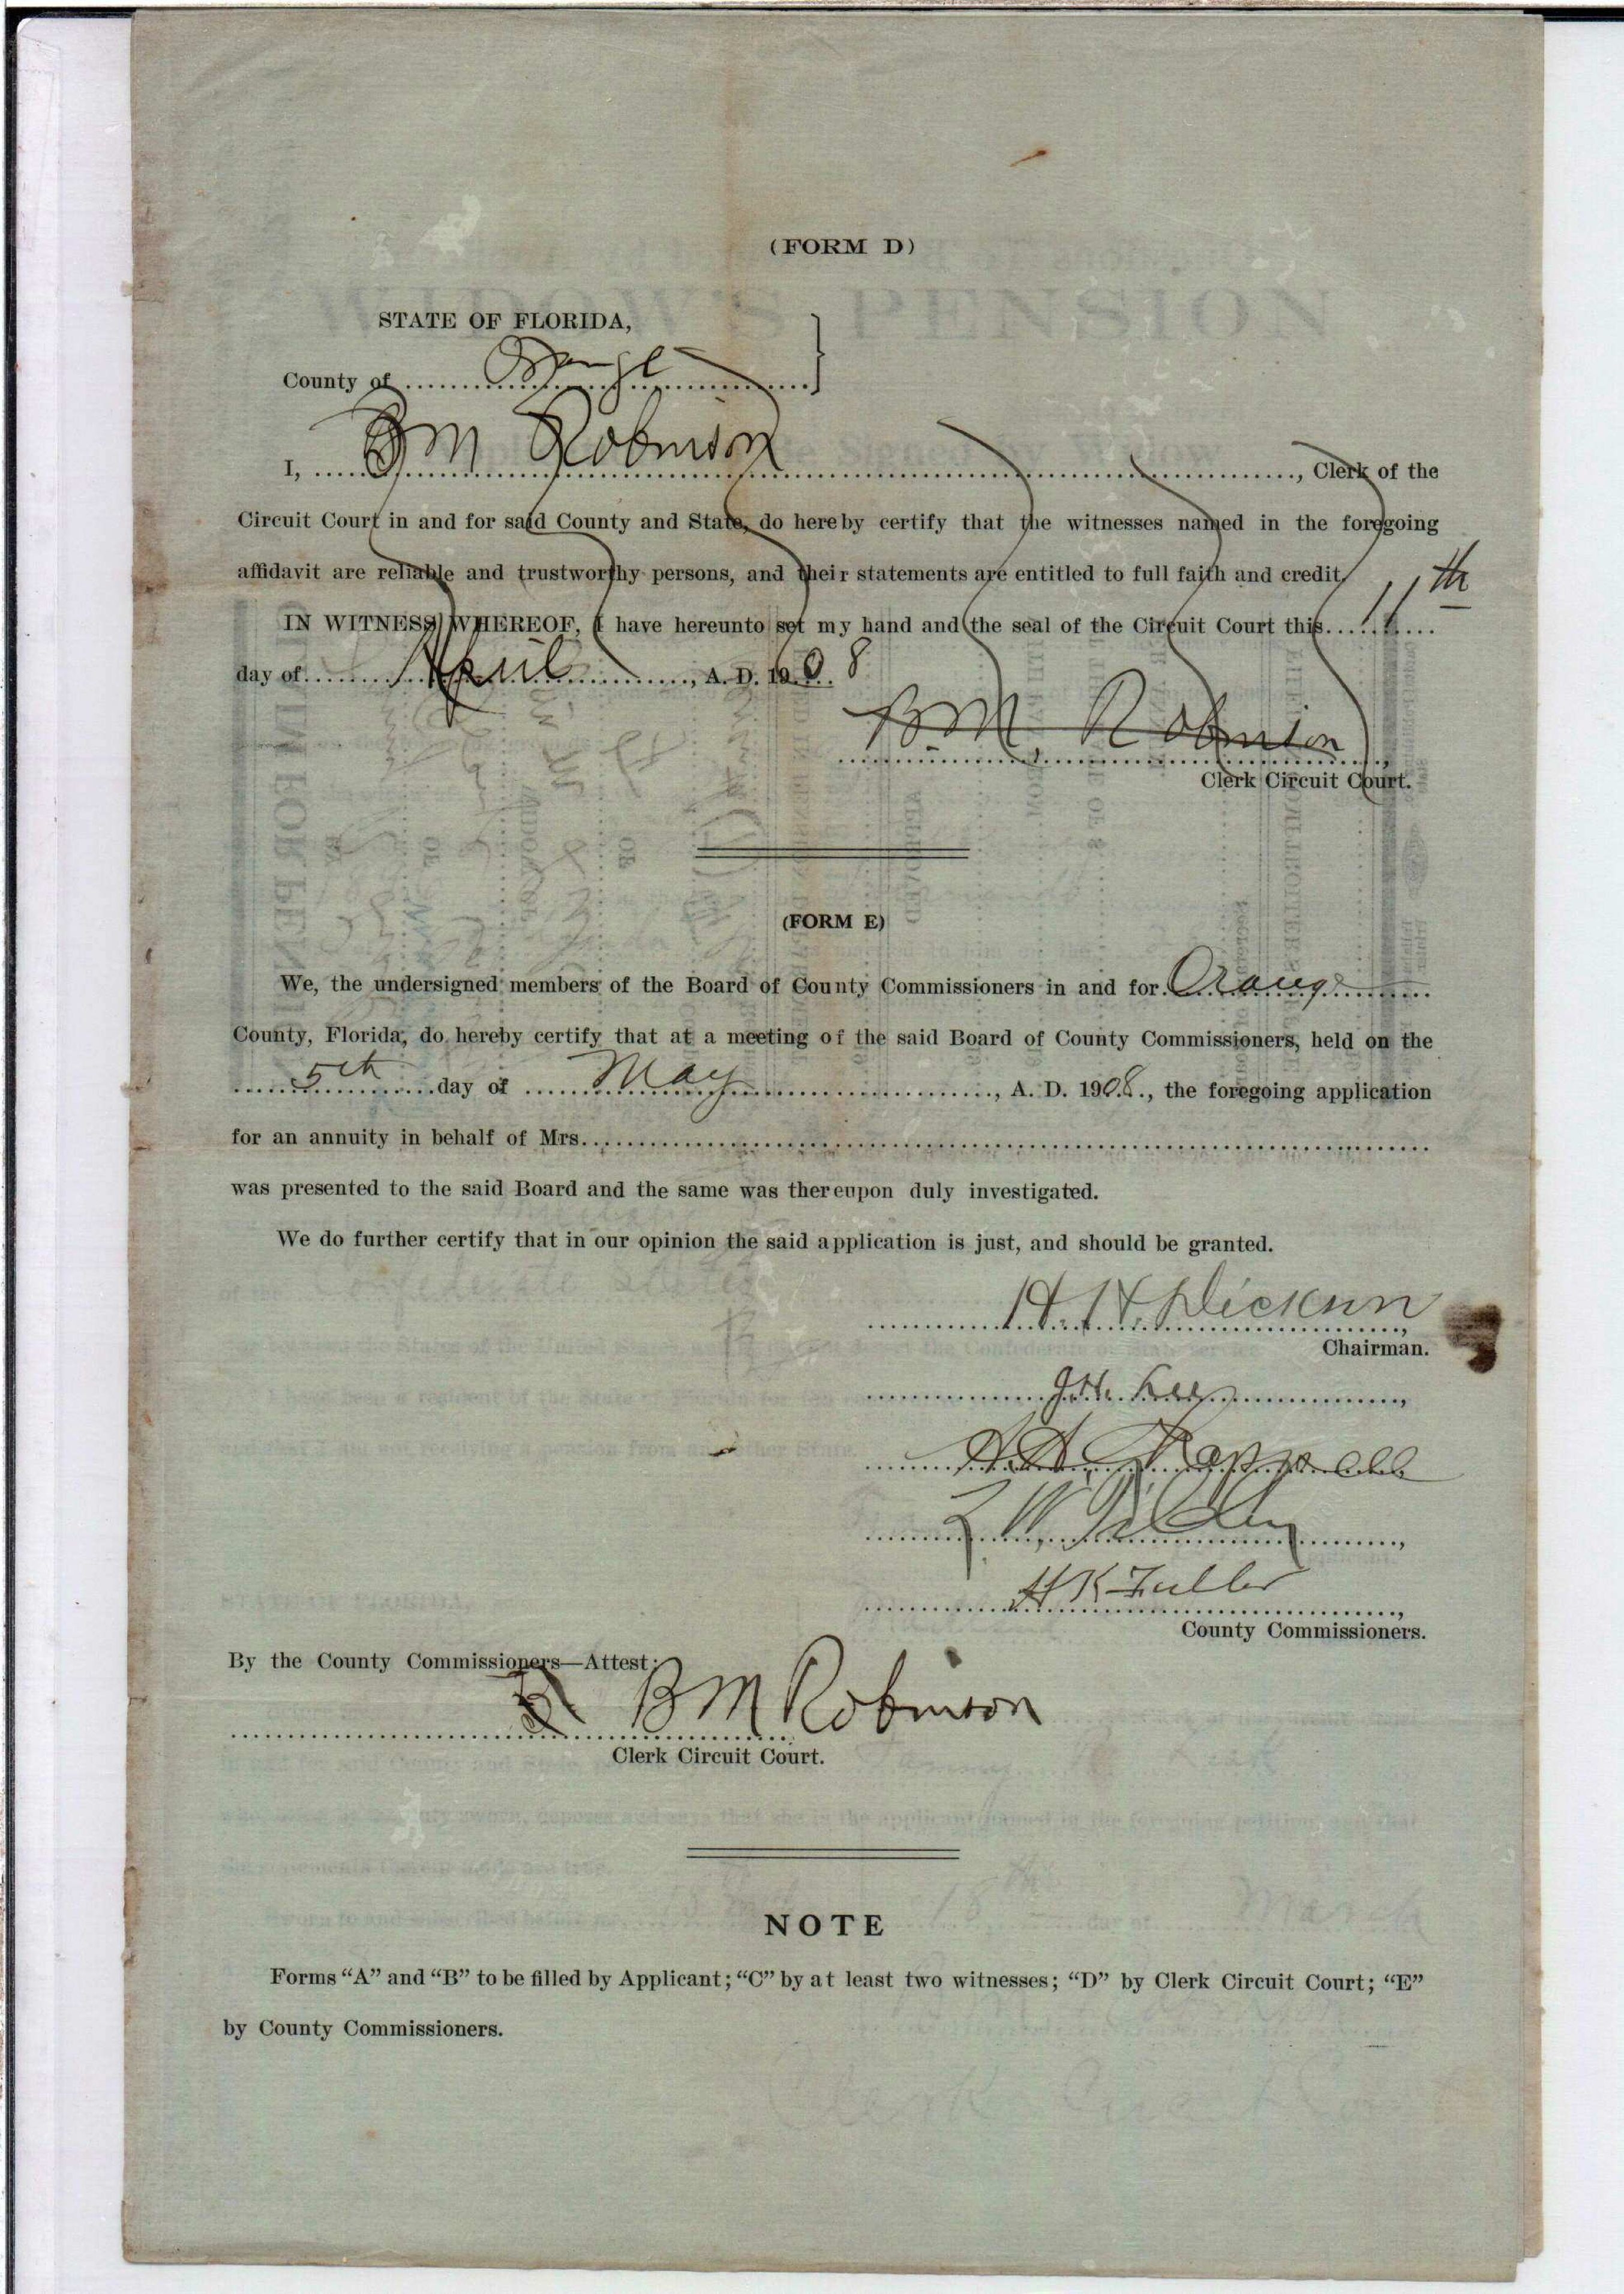 (FORM D)
STATE OF FLORIDA,
County of Orange
I, BM Robinson, Clerk of the
Circuit Court in and for said County and State, do hereby certify that the witnesses named in the foregoing
affidavit are reliable and trustworthy persons, and their statements are entitled to full faith and credit.
IN WITNESS WHEREOF, I have hereunto set my hand and the seal of the Circuit Court this 11th
day of April, A. D. 1908
B M. Robinson
Clerk Circuit Court.
(FORM E)
We, the undersigned members of the Board of County Commissioners in and for Orange
County, Florida, do hereby certify that at a meeting of the said Board of County Commissioners, held on the
5th day of May, A. D. 1908., the foregoing application
for an annuity in behalf of Mrs.
was presented to the said Board and the same was thereupon duly investigated.
We do further certify that in our opinion the said application is just, and should be granted.
H. H. Dickson
Chairman.
J.H. Lee
L W Tilden
H K Fuller
County Commissioners.
By the County Commissioners—Attest:
BM Robinson
Clerk Circuit Court.
NOTE
Forms "A" and "B" to be filled by Applicant; "C" by at least two witnesses; "D" by Clerk Circuit Court; "E"
by County Commissioners.